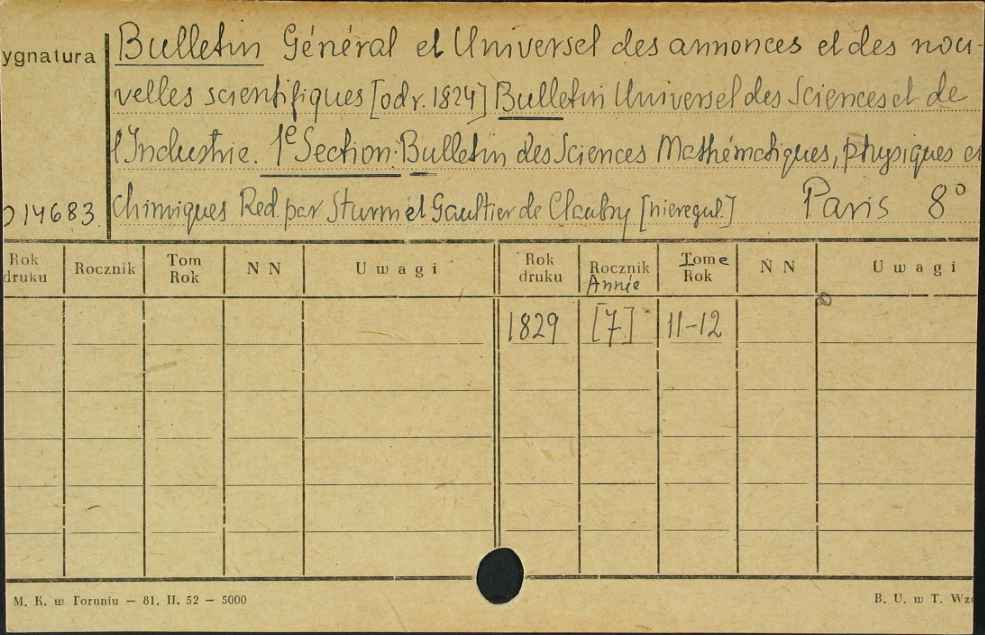 ygnatura
Bulletin Général et Universel des annonces et des nou-
velles scientifiques [od r. 1824] Bulletin Universel des Sciences et de
l'Industrie. 1e Section: Bulletin des Sciences Mathématiques, physiques et
014683. chimiques Red. par Sturm et Gaultier de Claubry [nieregul.] Paris 8°
Rok druku Rocznik Tom Rok N N Uwagi Rok druku Rocznik Année Tome Rok N N Uwagi
1829 [7] 11-12
M. K. w Toruniu — 81. II. 52 — 5000 B. U. w T. Wzó